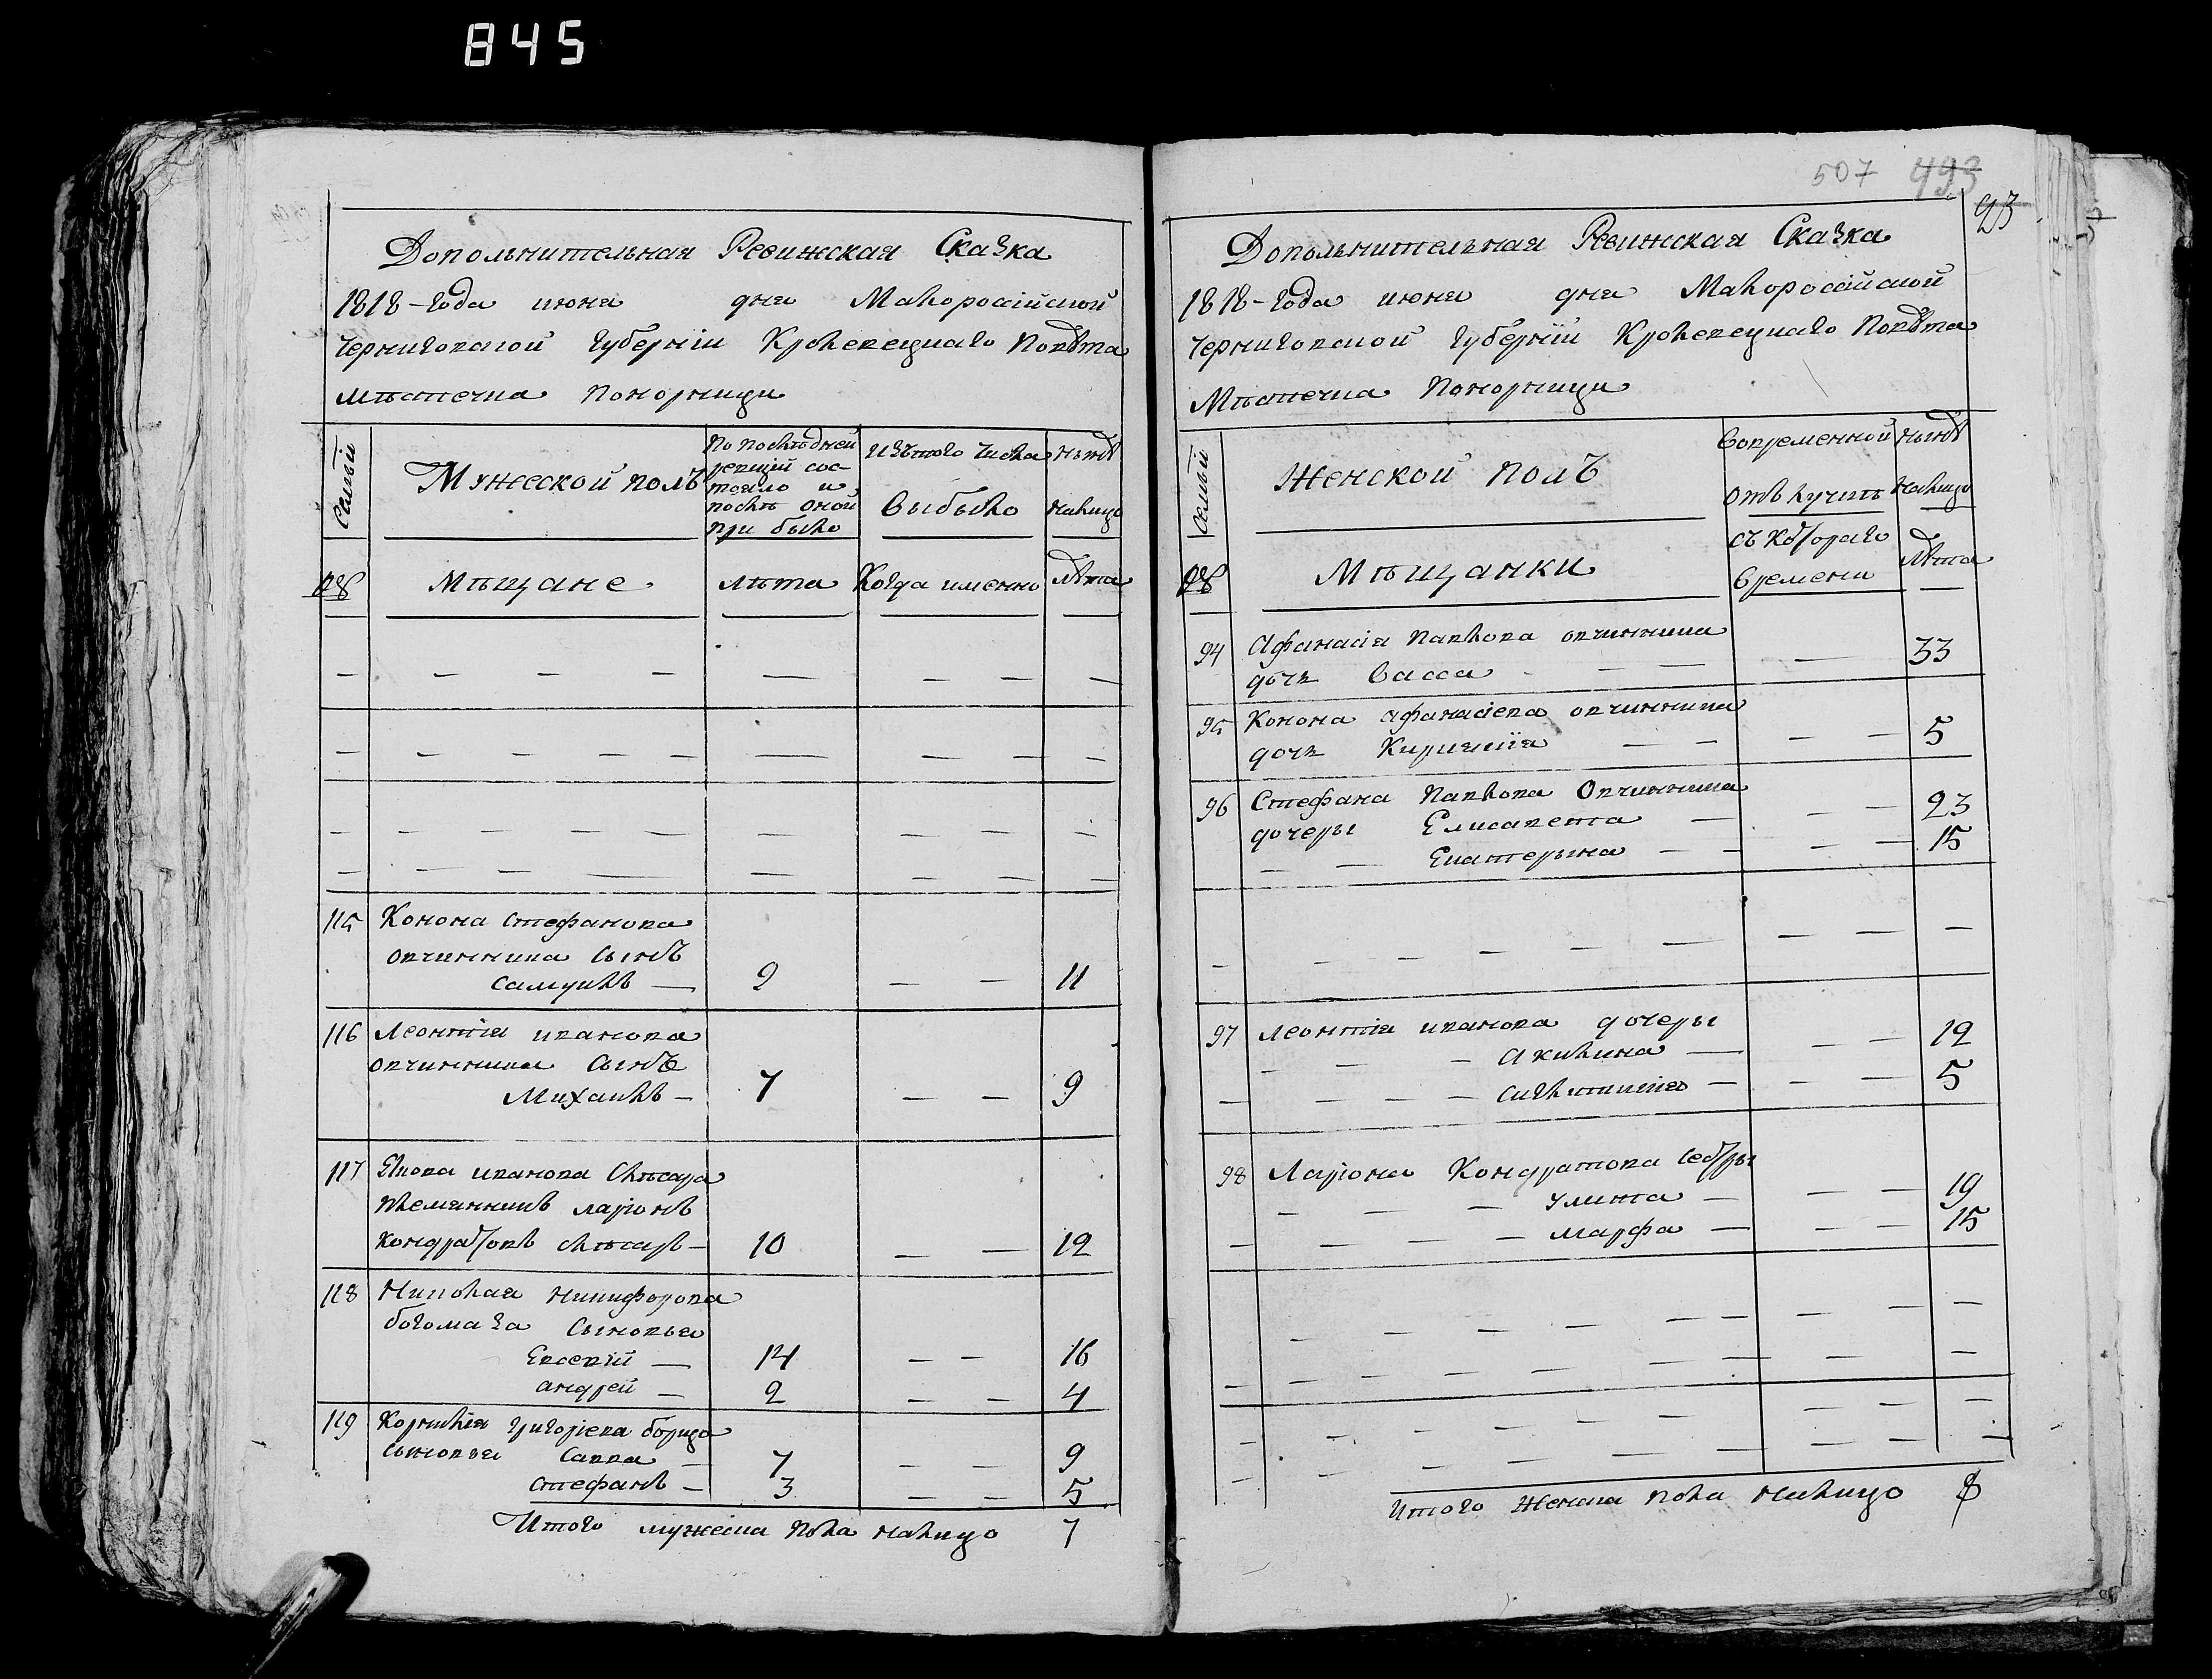 845
Дополънителъная Ревижская Сказка
1818-года июня дня Малоросійской
Черниговской Губерніи Кролевецкаго Повѣта
Мѣстечка Понорници
Семьи
Мужеской полъ
По послѣдней
ревизіи сос-
тояло и
послѣ оной
при было
изъ того числа
выбыло
нынѣ
налицо
№
Мѣщане
лѣта
Когда именно
лѣта
115 Конона Стефанова
овчинника сынъ
Самуилъ — 9 — — 11
116 Леонтія иванова
овчинника сынъ
Михаилъ — 7 — — 9
117 Якова иванова слѣсара
племянникъ ларіонъ
Кондратовъ слѣсарь — 10 — — 12
118 Николая никифорова
богомаза сыновья
Евсевій — 14 — — 16
андрей — 2 — — 4
119 Корнилія григорієва борица
сыновья Савва — 7 — — 9
Стефанъ — 3 — — 5
Итого мужеска пола налицо 7
507 493
93
Дополънителъная Ревижская Сказка
1818-года июня дня Малоросійской
Черниговской Губерніи Кролевецкаго Повѣта
Мѣстечка Понорници
Семьи
Женской полъ
Вовременной
отлучкѣ
съ которого
времени
нынѣ
налицо
лѣта
№
Мѣщанки
94 Афанасія Павлова овчинника
дочь Васса — — — 33
95 Конона афанасіева овчинника
дочь Кириякія — — — — 5
96 Стефана Павлова Овчинника
дочеры Елисавета — — — 23
— — Екатерына — — — — 15
97 Леонтія иванова дочеры
— Акилина — — — 12
— — — — Гликирія — — — 5
98 Ларіона Кондратова сестры
— — — Улита — — — 19
— — — — Марфа — — — 15
Итого женска пола налицо 8